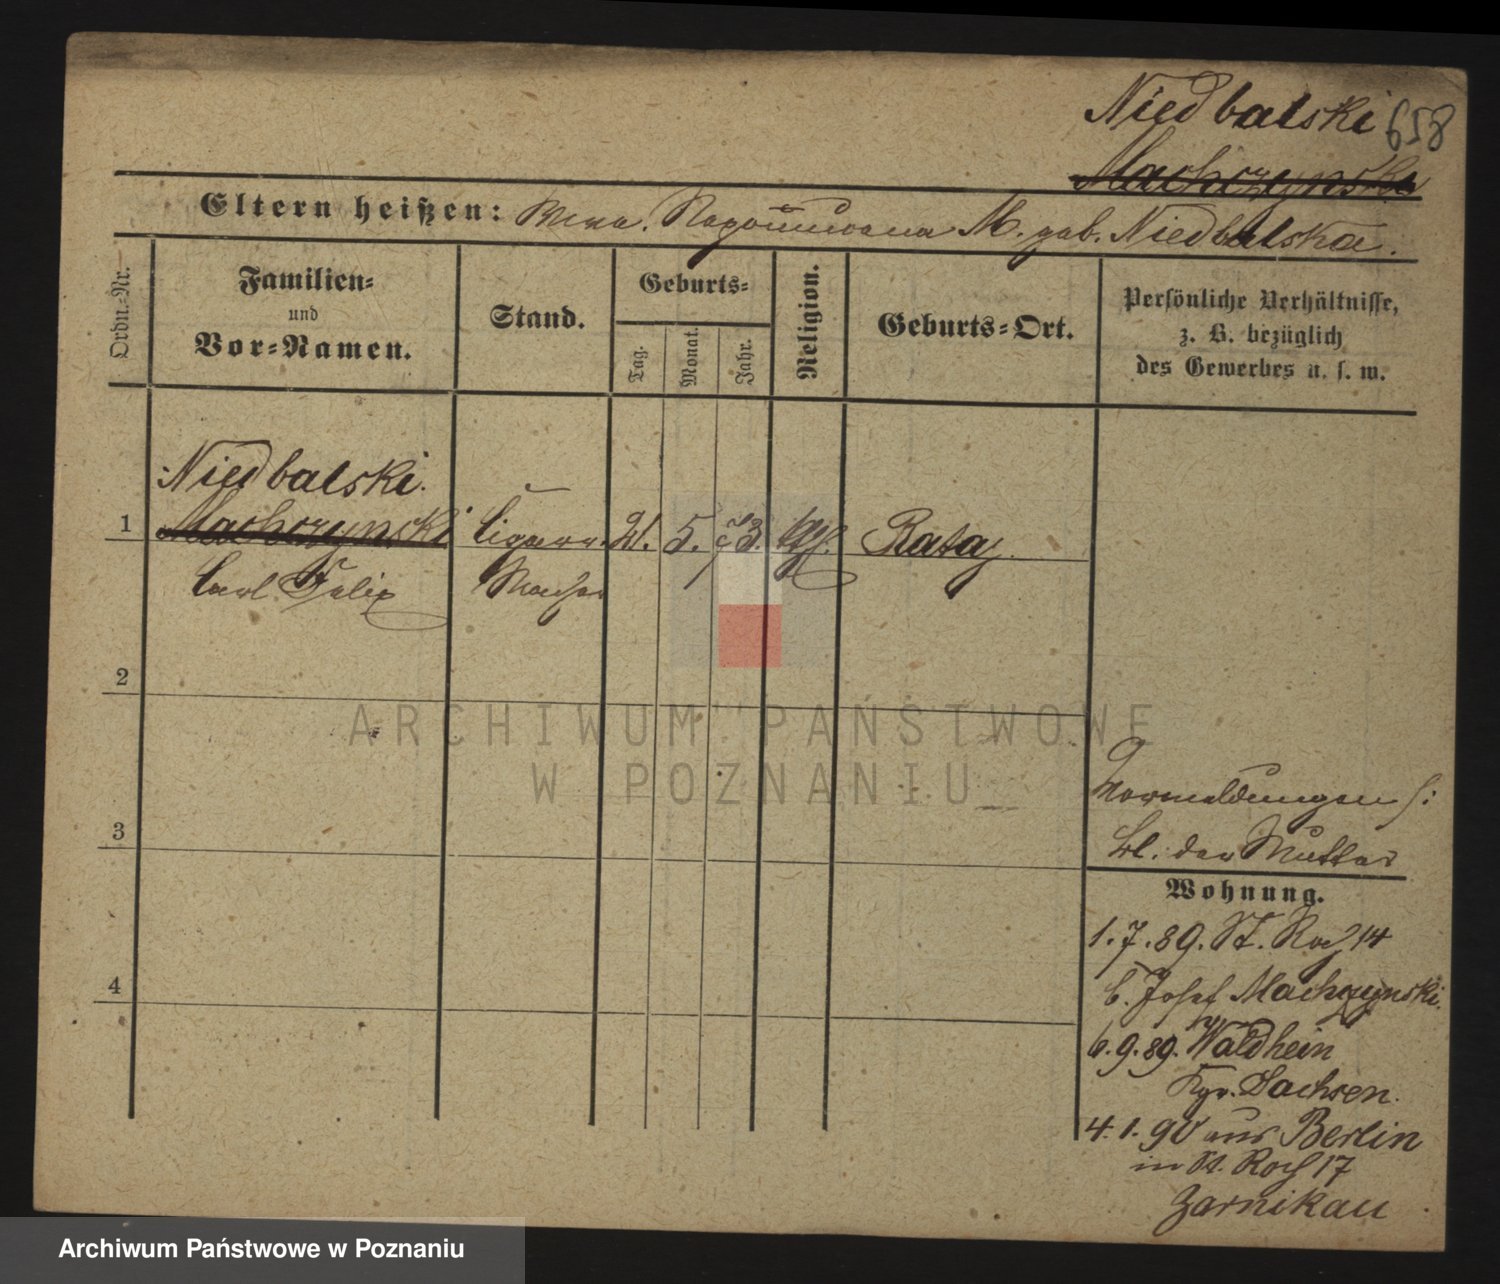 Niedbalski 658
Machczynski
Eltern heißen: Wwe. Nepomucena M. geb. Niedbalska.
Ordn.-Nr.
Familien-
und
Vor-Namen.
Stand.
Geburts-
Tag.
Monat.
Jahr.
Religion.
Geburts-Ort.
Persönliche Verhältnisse,
z. B. bezüglich
des Gewerbes u. s. w.
Niedbalski.
1 Machczynski Cigarr. 21. 5. 73. kath. Rataj
Carl Felix Macher
2
ARCHIWUM PAŃSTWOWE
W POZNANIU
Vormeldungen s:
3 Bl. der Mutter
Wohnung.
1.7.89. St. Roch 14
4 b. Josef Machczynski.
6.9.89. Waldhein
Kgr. Sachsen.
4.1.90 aus Berlin
in St. Roch 17
Zarnikau
Archiwum Państwowe w Poznaniu